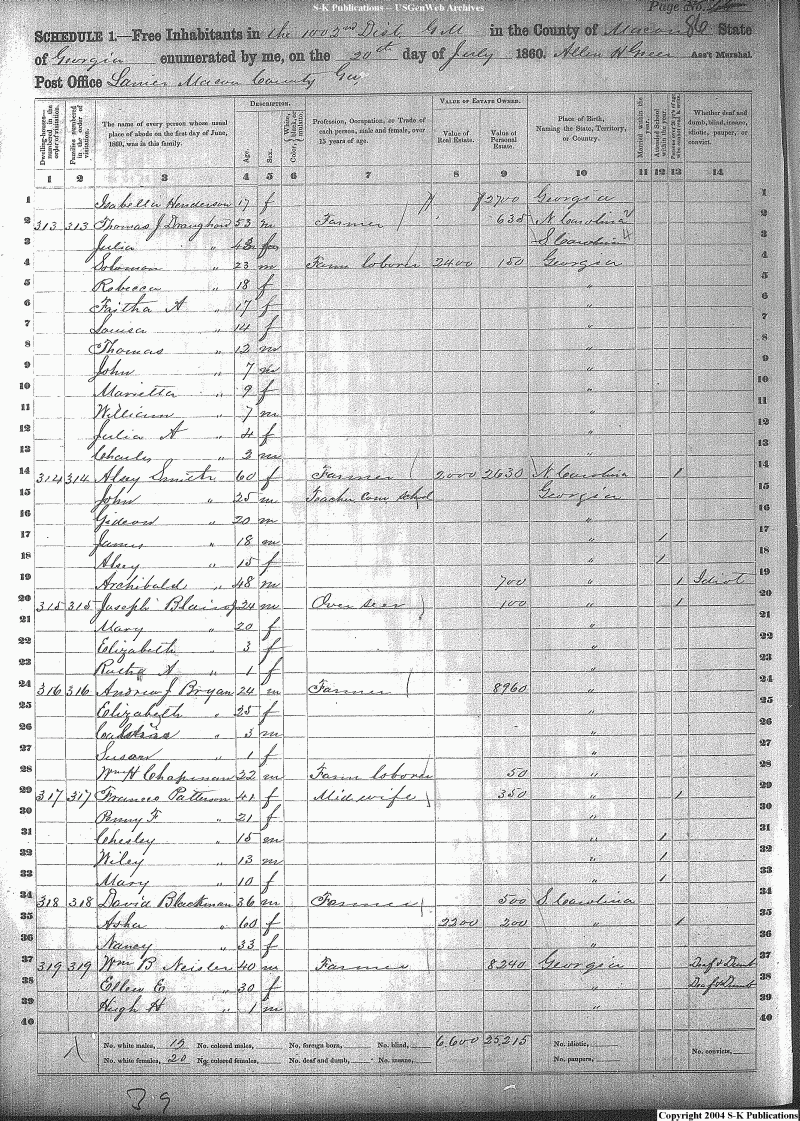 S-K Publications – USGenWeb Archives
Page No. 86
SCHEDULE 1.—Free Inhabitants in the 1002nd Dist G M in the County of Macon State
of Georgia enumerated by me, on the 20th day of July 1860. Allen H Greer Ass't Marshal.
Post Office Lanier Macon County Ga
Dwelling-houses—numbered in the order of visitation.
Families numbered in the order of visitation.
The name of every person whose usual place of abode on the first day of June, 1860, was in this family.
DESCRIPTION.
Age.
Sex.
Color, White, black, or mulatto.
Profession, Occupation, or Trade of each person, male and female, over 15 years of age.
VALUE OF ESTATE OWNED.
Value of Real Estate.
Value of Personal Estate.
Place of Birth, Naming the State, Territory, or Country.
Married within the year.
Attended School within the year.
Whether deaf and dumb, blind, insane, idiotic, pauper, or convict.
1 2 3 4 5 6 7 8 9 10 11 12 13 14
1 Isabella Henderson 17 f 2700 Georgia 1
2 313 313 Thomas J Draughon 53 m Farmer 635 N Carolina 2
3 Julia " 48 f S Carolina 3
4 Solomon " 23 m Farm laborer 2400 150 Georgia 4
5 Rebecca " 18 f " 5
6 Faitha A " 17 f " 6
7 Louisa " 14 f " 7
8 Thomas " 12 m " 8
9 John " 7 m " 9
10 Marietta " 9 f " 10
11 William " 7 m " 11
12 Julia A " 4 f " 12
13 Charles " 3 m " 13
14 314 314 Alsey Smith 60 f Farmer 2000 2630 N Carolina 1 14
15 John " 25 m Teacher Com School Georgia 15
16 Gideon " 20 m " 16
17 James " 18 m " 1 17
18 Alsey " 15 f " 1 18
19 Archibald " 48 m 700 " 1 Idiot 19
20 315 315 Joseph 24 m Over seer 100 " 1 20
21 Mary " 20 f " 21
22 Elizabeth " 3 f " 22
23 A " 1 f " 23
24 316 316 Andrew J Bryan 24 m Farmer 8960 " 24
25 Elizabeth " 25 f " 25
26 " 3 m " 26
27 Susan " 1 f " 27
28 Wm H Chapman 22 m Farm laborer 50 " 28
29 317 317 Frances Patterson 41 f Mid wife 350 " 1 29
30 Penny F " 21 f " 30
31 Chesley " 15 m " 1 31
32 Wiley " 13 m " 1 32
33 Mary " 10 f " 1 33
34 318 318 David Blackman 36 m Farmer 500 S Carolina 34
35 Asha " 60 f 2200 200 " 1 35
36 Nancy " 33 f " 36
37 319 319 Wm B Neisler 40 m Farmer 8240 Georgia Deaf & Dumb 37
38 Ellen E " 30 f " Deaf & Dumb 38
39 Hugh H " 1 m " 39
40 40
No. white males, 19 No. colored males, No. foreign born, No. blind, 6,600 25,215 No. idiotic,
No. white females, 20 No. colored females, No. deaf and dumb, No. insane, No. paupers, No. convicts,
39
Copyright 2004 S-K Publications